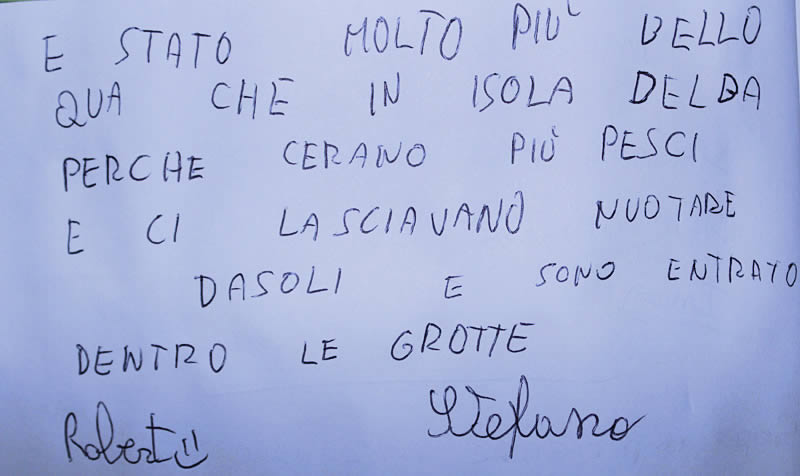 E STATO MOLTO PIÙ BELLO
QUA CHE IN ISOLA DELBA
PERCHE CERANO PIÙ PESCI
E CI LASCIAVANO NUOTARE
DASOLI E SONO ENTRATO
DENTRO LE GROTTE
Robert Stefano